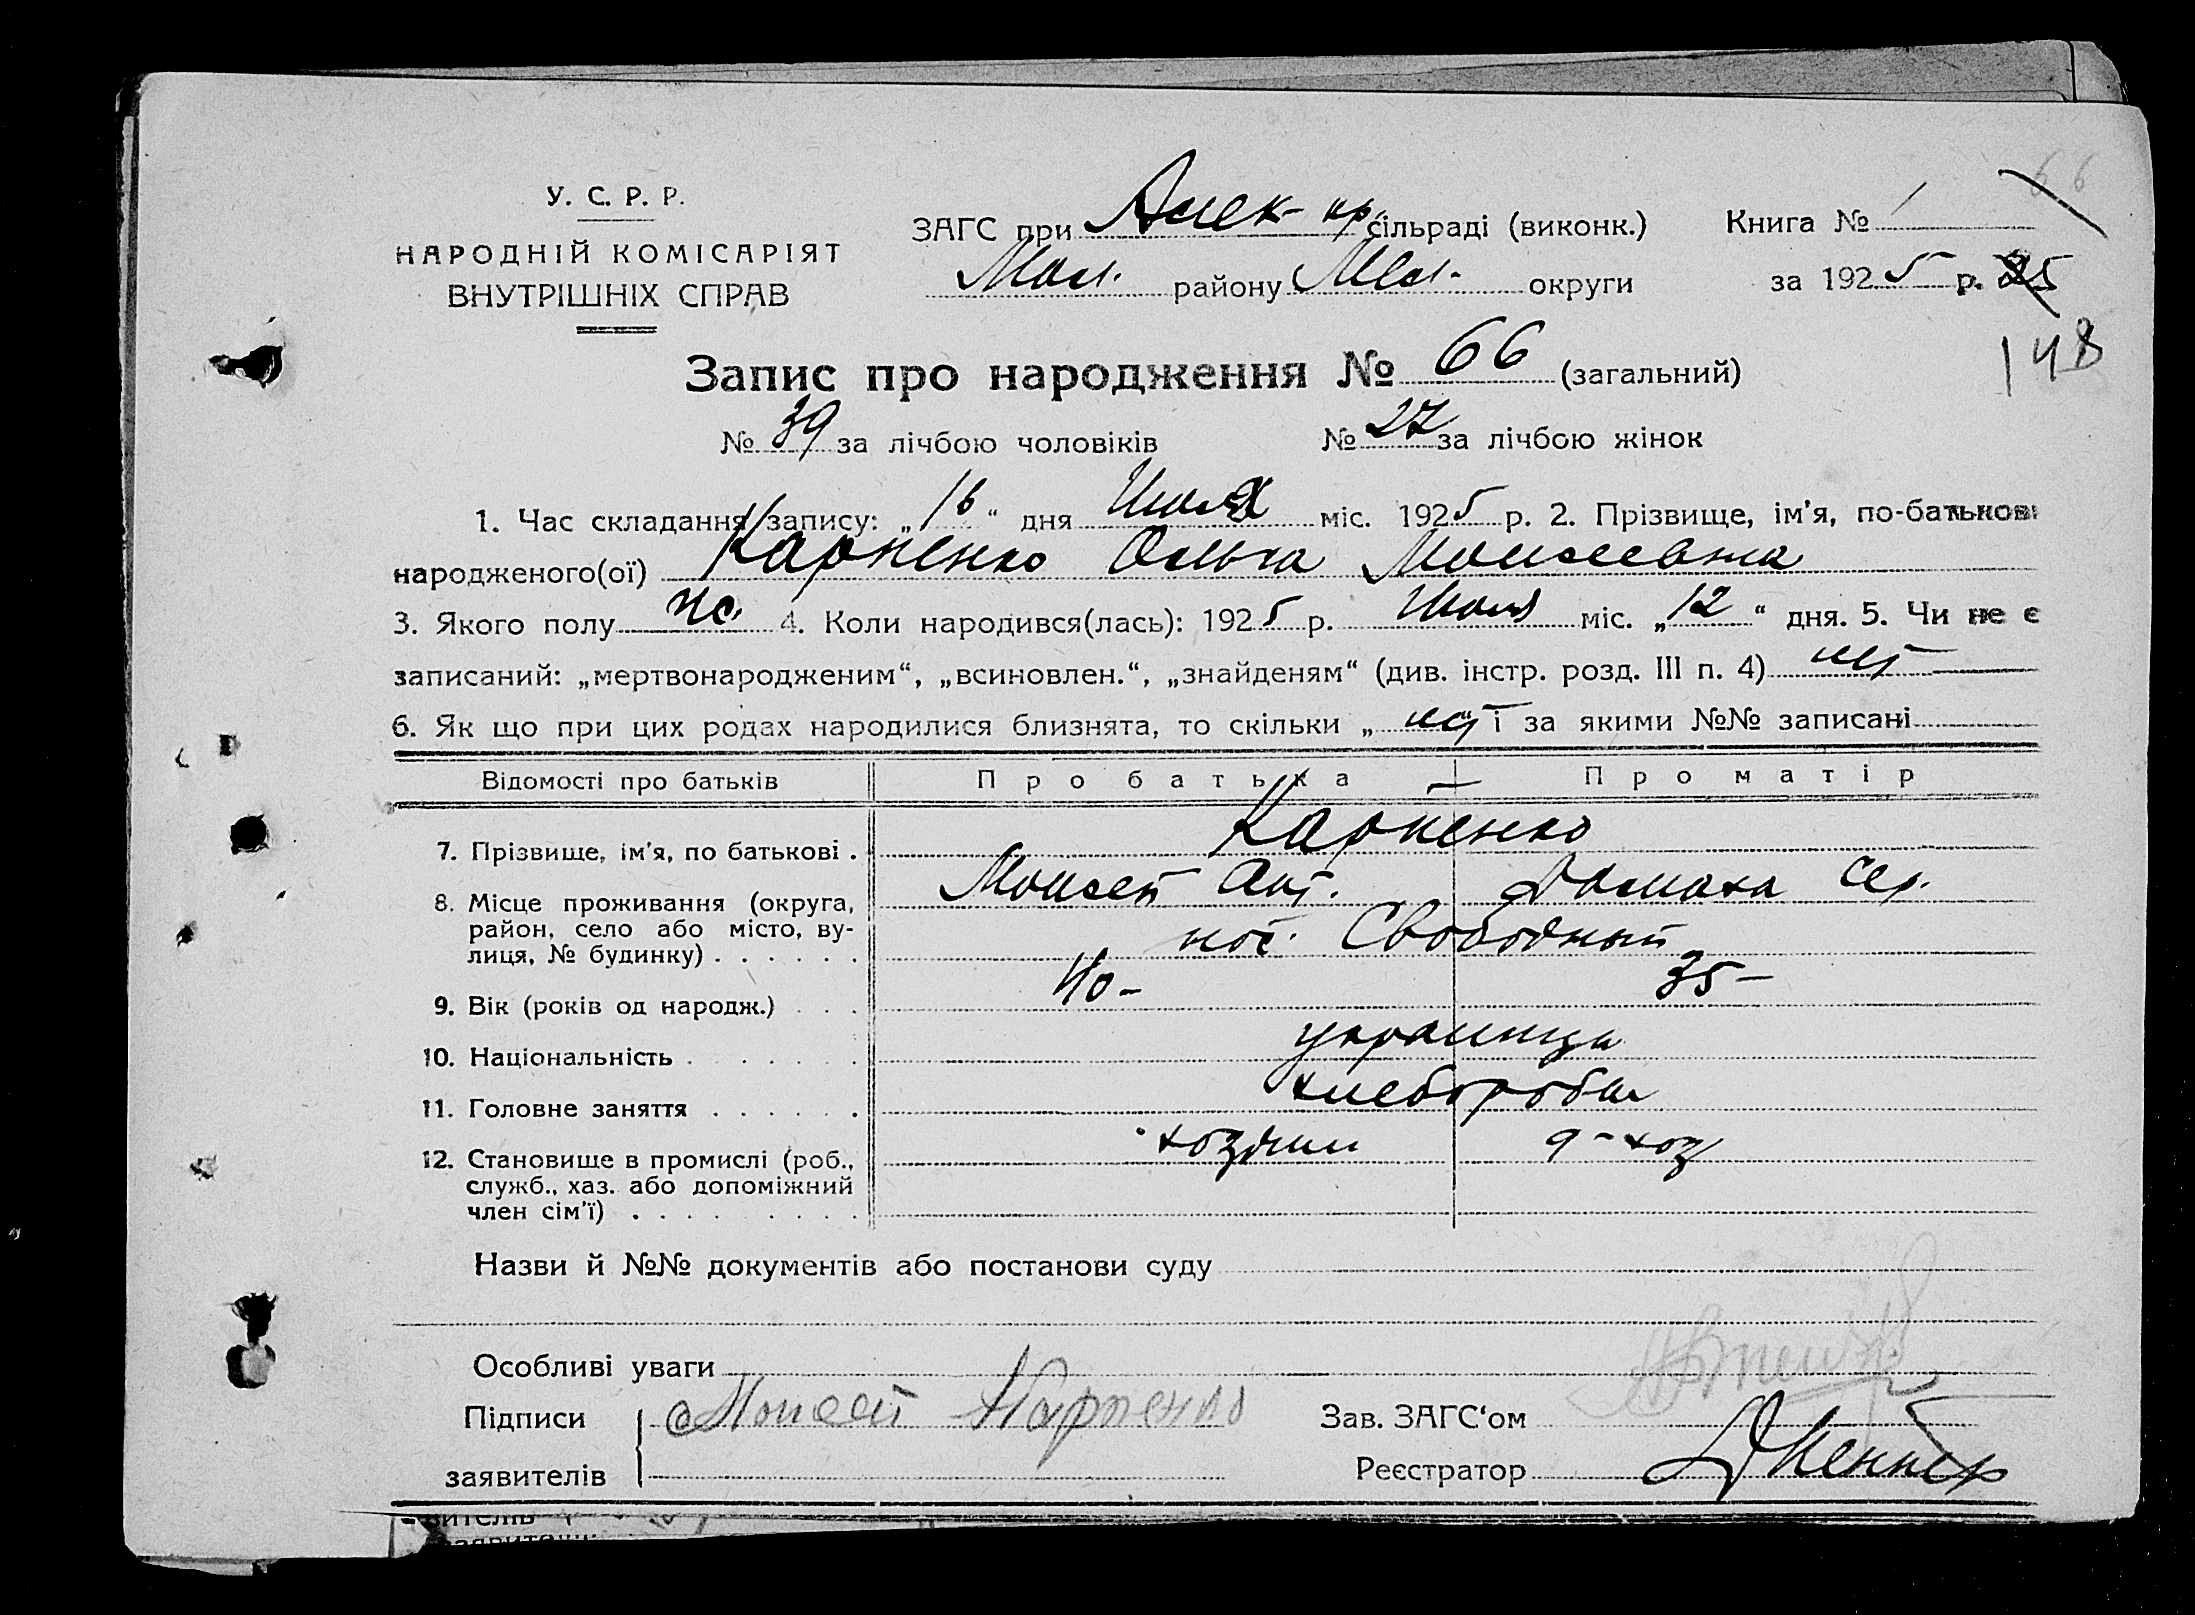 У. С. Р. Р.
НАРОДНІЙ КОМІСАРІЯТ
ВНУТРІШНІХ СПРАВ
ЗАГС при Алек-кр. сільраді (виконк.) Книга № 1
Мол. району Мел. округи за 1925 р. 25
66
148
Запис про народження № 66 (загальний)
№ 39 за лічбою чоловіків № 27 за лічбою жінок
1. Час складання запису: „16“ дня Июля міс. 1925 р. 2. Прізвище, ім'я, по-батькові
народженого(ої) Карпенко Ольга Моисеевна
3. Якого полу ж. 4. Коли народився(лась): 1925 р. Июля міс. „12“ дня. 5. Чи не є
записаний: „мертвонародженим“, „всиновлен.“, „знайденям“ (див. інстр. розд. III п. 4) нет
6. Як що при цих родах народилися близнята, то скільки „нет“ і за якими №№ записані —
Відомості про батьків Про батька Про матір
7. Прізвище, ім'я, по батькові . Карпенко
Моисей Ант. Домаха Сер.
8. Місце проживання (округа,
район, село або місто, ву-
лиця, № будинку) . . . . . . пос. Свободный
9. Вік (років од народж.) . . . 40- 35-
10. Національність . . . . . . украинцы
11. Головне заняття . . . . . . хлеборобы
12. Становище в промислі (роб.,
служб., хаз. або допоміжний
член сім'ї) . . . . . . . . хозяин д-хоз
Назви й №№ документів або постанови суду
Особливі уваги
Підписи Моисей Карпенко Зав. ЗАГС'ом
заявителів Реєстратор